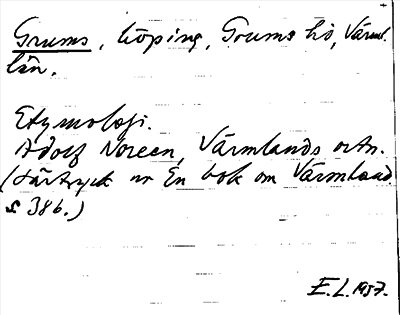 Grums, köping, Grums hd, Värml.
län.
Etymologi.
Adolf Noreen, Värmlands ortn.
(Särtryck ur En bok om Värmland
s 386.)
E.L. 1937.